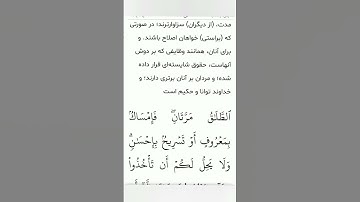 مدت، (از دیگران) سزاوارترند؛ در صورتی
که (براستی) خواهان اصلاح باشند. و
برای آنان، همانند وظایفی که بر دوش
آنهاست، حقوق شایسته‌ای قرار داده
شده؛ و مردان بر آنان برتری دارند؛ و
خداوند توانا و حکیم است
ٱلطَّلَٰقُ مَرَّتَانِۖ فَإِمۡسَاكُۢ
بِمَعۡرُوفٍ أَوۡ تَسۡرِيحُۢ بِإِحۡسَٰنٖۗ
وَلَا يَحِلُّ لَكُمۡ أَن تَأۡخُذُواْ